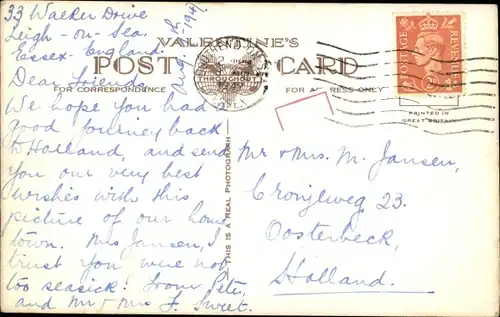 33 Walker Drive
Leigh-on-Sea
Essex England.
Aug. 1947
Dear friends,
We hope you had a
good journey back
to Holland, and send
you our very best
wishes with this
picture of our home
town. Mrs Jansen, I
trust you were not
too seasick! From Pete,
and Mr + Mrs F. Sweet.
VALENTINE'S
POST CARD
FOR CORRESPONDENCE
FOR ADDRESS ONLY
THIS IS A REAL PHOTOGRAPH
THROUGHOUT
POSTAGE
REVENUE
PRINTED IN
GREAT BRITAIN
Mr + Mrs. M. Jansen,
Cronjéweg 23.
Oosterbeek,
Holland.